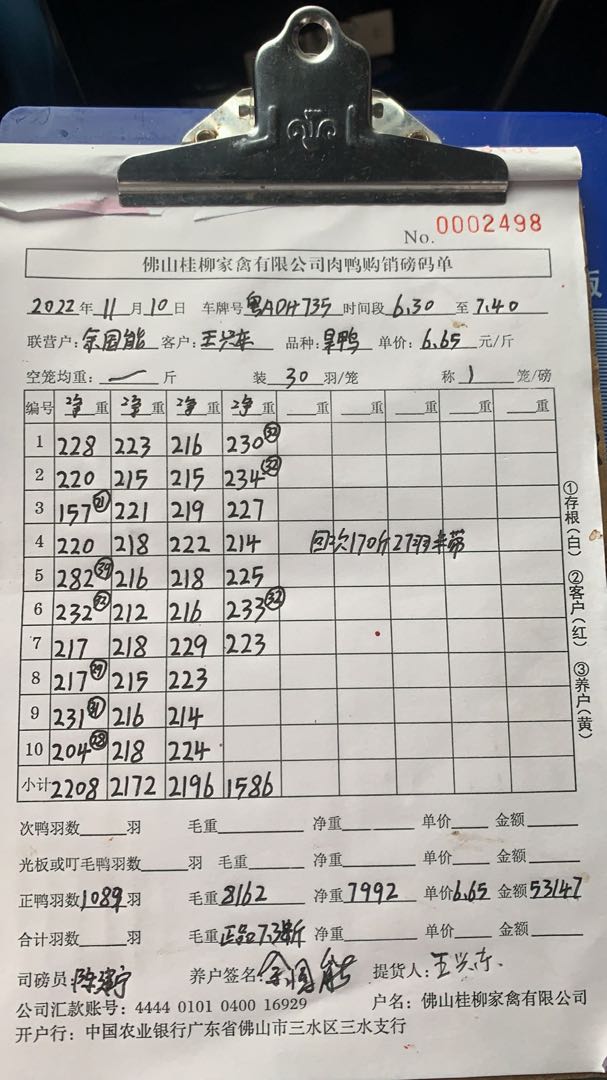 No. 0002498
佛山桂柳家禽有限公司肉鸭购销磅码单
2022年 11 月 10 日 车牌号 粤ADH735 时间段 6.30 至 7.40
联营户: 余国能 客户: 王兴东 品种: 单价: 6.65 元/斤
空笼均重: 一 斤 装 30 羽/笼 称 1 笼/磅
编号 净重 净重 净重 净重 重 重 重 重
1 228 223 216 230 32
2 220 215 215 234 32
3 157 21 221 219 227
4 220 218 222 214 回次170斤27羽未带
5 282 39 216 218 225
6 232 32 212 216 233 32
7 217 218 229 223
8 217 29 215 223
9 231 31 216 214
10 204 28 218 224
小计 2208 2172 2196 1586
次鸭羽数 羽 毛重 净重 单价 金额
光板或叮毛鸭羽数 羽 毛重 净重 单价 金额
正鸭羽数 1089 羽 毛重 8162 净重 7992 单价 6.65 金额 53147
合计羽数 羽 毛重 正品7.3斤 净重 单价 金额
司磅员: 养户签名: 余国能 提货人: 王兴东
公司汇款账号: 4444 0101 0400 16929 户名: 佛山桂柳家禽有限公司
开户行: 中国农业银行广东省佛山市三水区三水支行
①存根(白) ②客户(红) ③养户(黄)